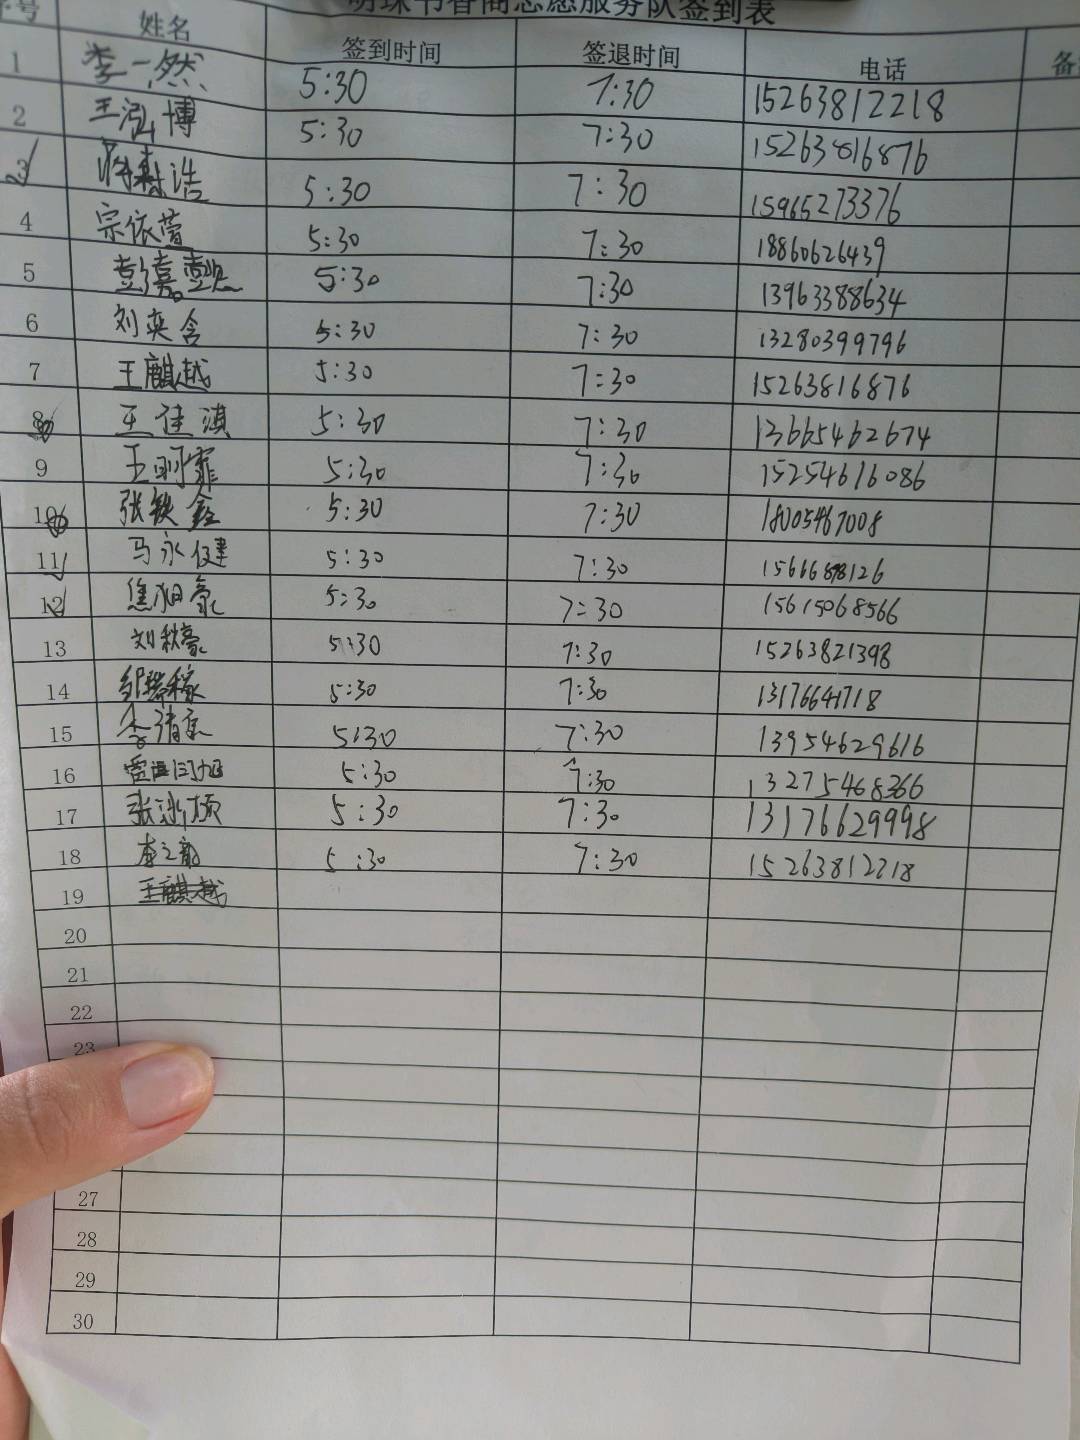 明珠书香商志愿服务队签到表
序号 姓名 签到时间 签退时间 电话 备
1 李一然 5:30 7:30 15263812218
2 王泓博 5:30 7:30 15263816876
3 浩 5:30 7:30 15965273376
4 宗依萱 5:30 7:30 18860626439
5 彭嘉懿 5:30 7:30 13963388634
6 刘奕含 5:30 7:30 13280399796
7 王麒越 5:30 7:30 15263816876
8 王佳淇 5:30 7:30 13665462674
9 王明霏 5:30 7:30 15254616086
10 张铁鑫 5:30 7:30 18005467008
11 马永健 5:30 7:30
12 焦 豪 5:30 7:30 15615068566
13 刘秋豪 5:30 7:30 15263821398
14 邹瑞稼 5:30 7:30 13176641718
15 李清 5:30 7:30 13954629616
16 5:30 7:30 13275468366
17 张 5:30 7:30 13176629998
18 李之韵 5:30 7:30 15263812218
19 王麒越
20
21
22
23
27
28
29
30